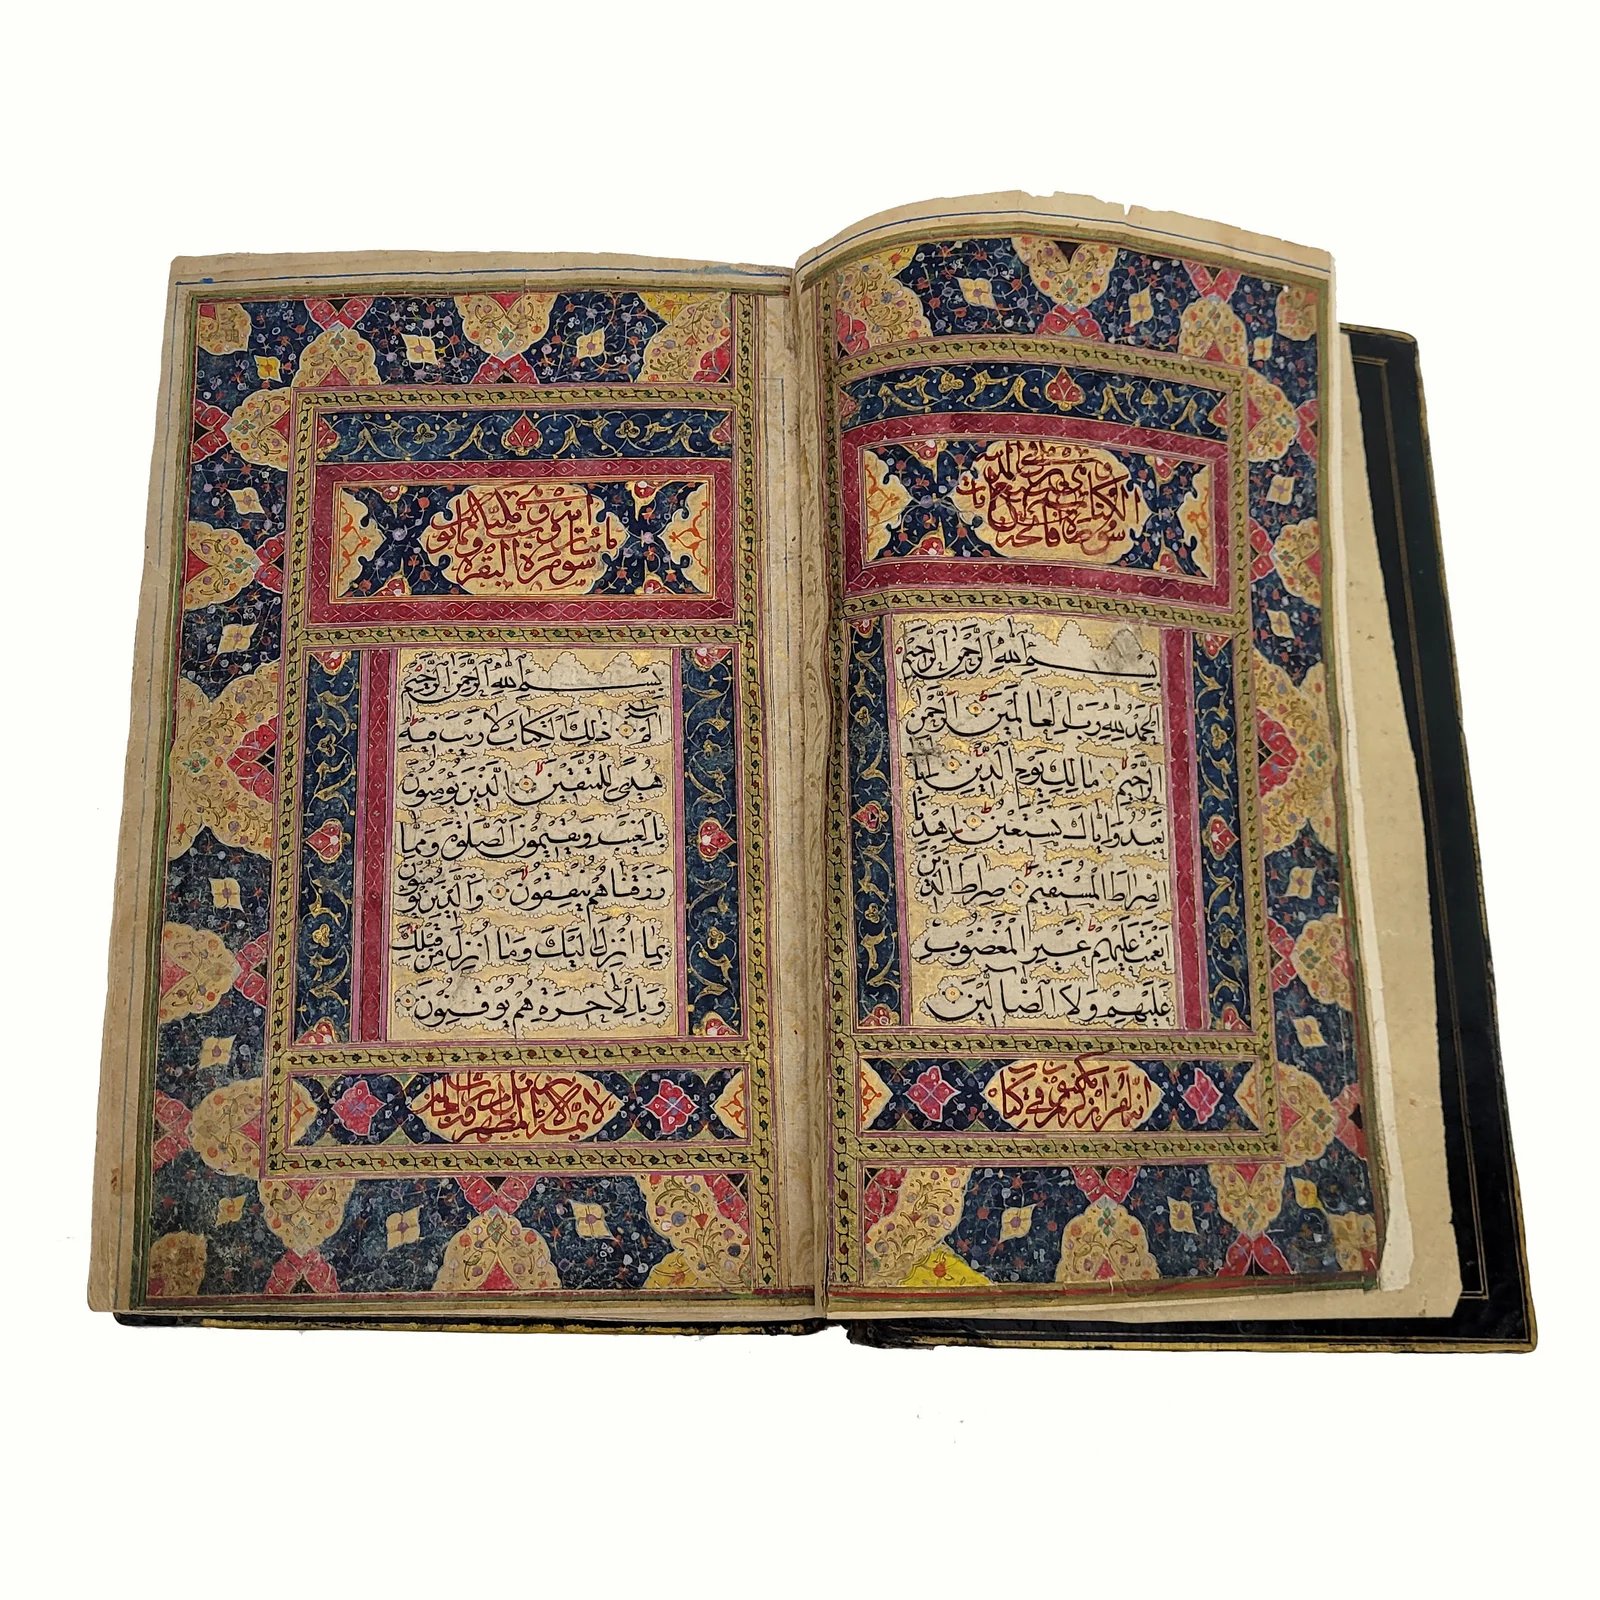 سورة فاتحة الكتاب
بِسْمِ اللهِ الرَّحْمٰنِ الرَّحِيمِ
اَلْحَمْدُ لِلهِ رَبِّ الْعَالَمِينَ الرَّحْمٰنِ
الرَّحِيمِ مَالِكِ يَوْمِ الدِّينِ اِيَّاكَ
نَعْبُدُ وَاِيَّاكَ نَسْتَعِينُ اِهْدِنَا
الصِّرَاطَ الْمُسْتَقِيمَ صِرَاطَ الَّذِينَ
اَنْعَمْتَ عَلَيْهِمْ غَيْرِ الْمَغْضُوبِ
عَلَيْهِمْ وَلَا الضَّالِّينَ
انه لقران كريم في كتاب مكنون
سورة البقرة
بِسْمِ اللهِ الرَّحْمٰنِ الرَّحِيمِ
الٓمٓ ذٰلِكَ الْكِتَابُ لَا رَيْبَ فِيهِ
هُدًى لِلْمُتَّقِينَ الَّذِينَ يُؤْمِنُونَ
بِالْغَيْبِ وَيُقِيمُونَ الصَّلٰوةَ وَمِمَّا
رَزَقْنَاهُمْ يُنْفِقُونَ وَالَّذِينَ يُؤْمِنُونَ
بِمَا اُنْزِلَ اِلَيْكَ وَمَا اُنْزِلَ مِنْ قَبْلِكَ
وَبِالْاٰخِرَةِ هُمْ يُوقِنُونَ
لا يمسه الا المطهرون